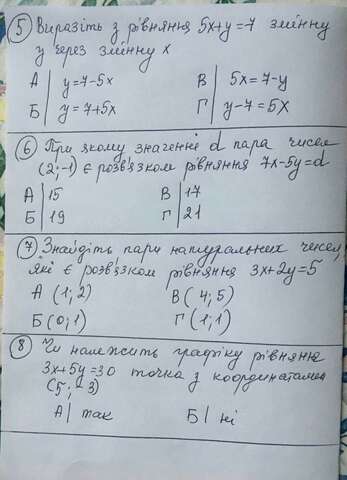 5 Виразіть з рівняння 5x+y=7 змінну
y через змінну x
А | y=7-5x В | 5x=7-y
Б | y=7+5x Г | y-7=5x
6 При якому значенні d пара чисел
(2;-1) є розв'язком рівняння 7x-5y=d
А | 15 В | 17
Б | 19 Г | 21
7 Знайдіть пари натуральних чисел,
які є розв'язком рівняння 3x+2y=5
А (1;2) В (4;5)
Б (0;1) Г (1;1)
8 Чи належить графіку рівняння
3x+5y=30 точка з координатами
(5;-3)
А | так Б | ні